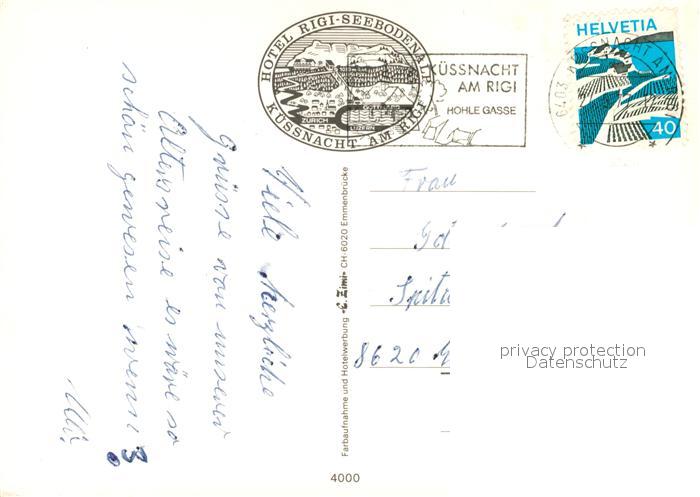 HOTEL RIGI-SEEBODENALP
KÜSSNACHT AM RIGI
ZÜRICH
LUZERN
KÜSSNACHT
AM RIGI
HOHLE GASSE
6403 KÜSSNACHT AM
HELVETIA
40
Viele herzliche
Grüsse von unserer
es wäre so
schön gewesen wenn
Frau
Spita
8620
Farbaufnahme und Hotelwerbung -E. Zimi- CH-6020 Emmenbrücke
4000
privacy protection
Datenschutz